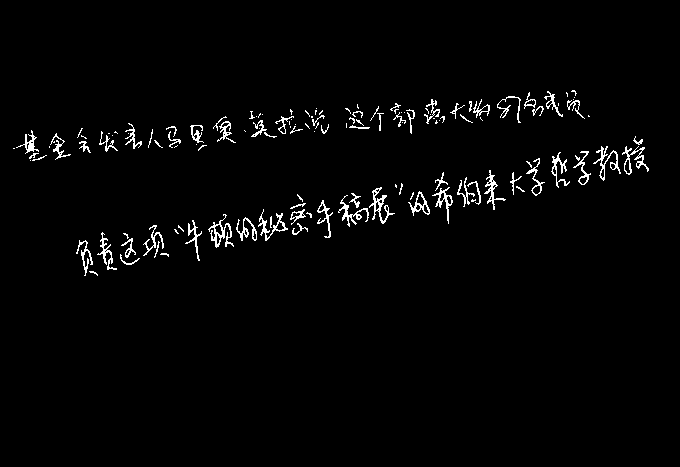 基金会发言人马里奥·莫拉说这个部落大约87名成员.
负责这项“牛顿的秘密手稿展”的希伯来大学哲学教授